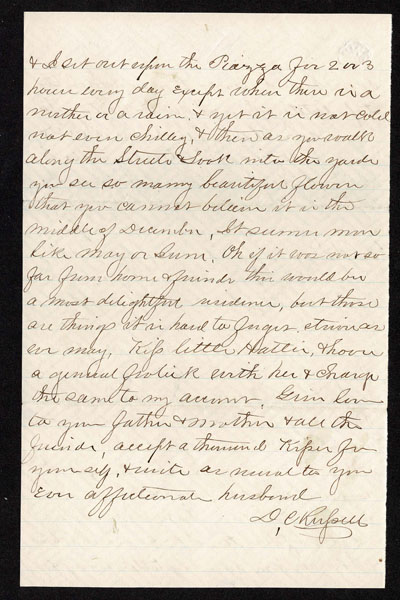 & I sit out upon the Piazza for 2 or 3
hours every day except when there is a
norther or a rain. & yet it is not cold
not even chilley, & then as you walk
along the Streets & look into the yards
you see so many beautiful flowers
that you cannot believe it is the
middle of December, It seems more
like May or June. Oh if it was not so
far from home & friends this would be
a most delightful residence, but those
are things it is hard to forget, strive as
we may. Kiss little Hattie, & have
a general frolick with her & charge
the same to my account. Give love
to your father & mother & all the
friends, accept a thousand kisses for
yourself, & write as usual to your
Ever affectionate husband
D, C Russell